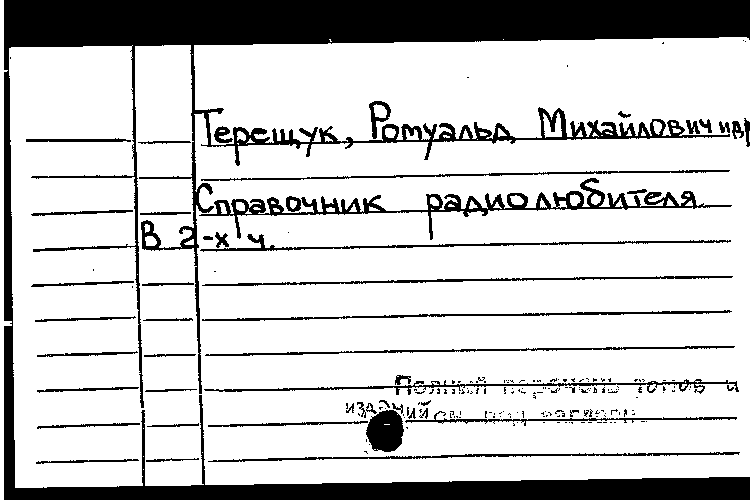 Терещук, Ромуальд Михайлович и др
Справочник радиолюбителя
В 2-х ч.
Полный перечень томов и
изданий см. под заглавн.